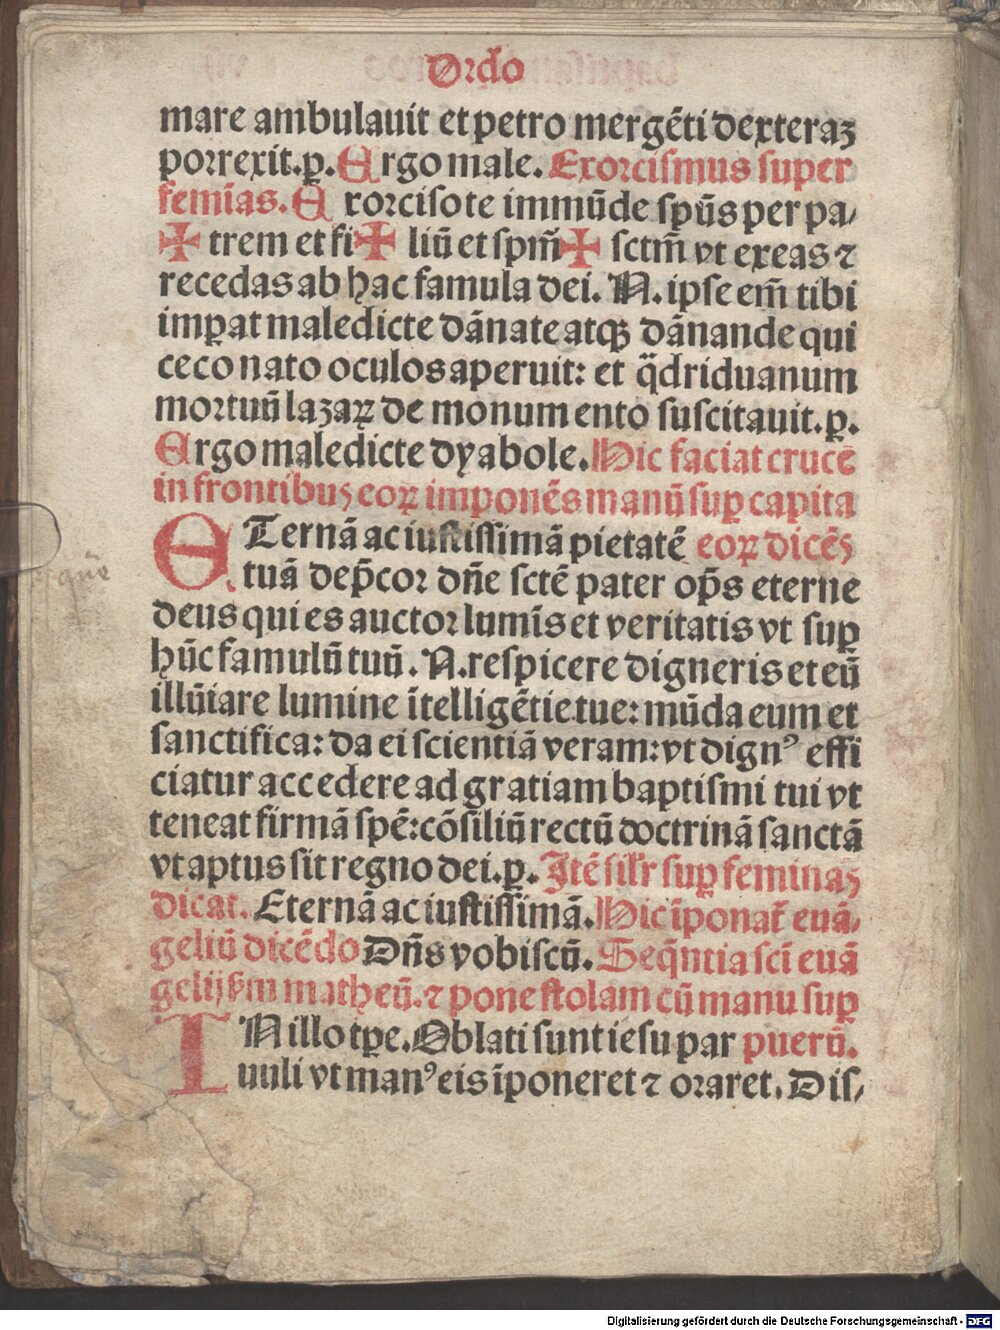 Ordo
mare ambulauit et petro mergēti dexteraꝫ
porrexit.ꝑ. Ergo male. Exorcismus super
femīas. E xorciso te immūde spūs per pa⸗
✠ trem et fi ✠ liū et spm̄ ✠ sctm̄ vt exeas ⁊
recedas ab hac famula dei. N. ipse em̄ tibi
imꝑat maledicte dānate atqꝫ dānande qui
ceco nato oculos aperuit: et q̄driduanum
mortuū lazaꝝ de monumento suscitauit.ꝑ.
Ergo maledicte dyabole. Hic faciat crucē
in frontibus eoꝝ imponēs manū suꝑ capita
ETernā ac iustissimā pietatē eoꝝ dicēs
tuā dep̄cor dn̄e sctē pater op̄s eterne
deus qui es auctor lumīs et veritatis vt suꝑ
hūc famulū tuū. N. respicere digneris et eū
illūiare lumine ītelligētie tue: mūda eum et
sanctifica: da ei scientiā veram: vt dignꝰ effi
ciatur accedere ad gratiam baptismi tui vt
teneat firmā spē: cōsiliū rectū doctrinā sanctā
vt aptus sit regno dei.ꝑ. Itē silr̄ suꝑ feminas
dicat. Eternā ac iustissimā. Hic īponat̄ euā⸗
geliū dicēdo Dn̄s vobiscū. Seq̄ntia scī euā
gelij ẜm matheū. ⁊ pone stolam cū manu suꝑ
IN illo tꝑe. Oblati sunt iesu par puerū.
uuli vt manꝰ eis īponeret ⁊ oraret. Dis⸗
Digitalisierung gefördert durch die Deutsche Forschungsgemeinschaft - DFG